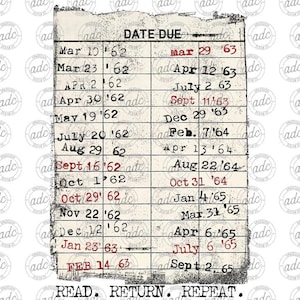 DATE DUE
Mar 10 '62 Mar 29 '63
Mar 23 '62 Apr 12 '63
Apr 2 '62 July 2 '63
Apr 30 '62 Sept 11 '63
May 19 '62 Dec 29 '63
July 20 '62 Feb. 7 '64
Aug 29 62 apr 13 '64
Sept 16 '62 Aug 22 '64
Oct 1 '62 Oct 31 '64
Oct 29 '62 Jan 4 '65
Nov 22 '62 Mar 31 '65
Dec 12 '62 Apr 6 '65
Jan 23 63 July 6 '65
FEB 14 63 Sept 2, 65
READ. RETURN. REPEAT.